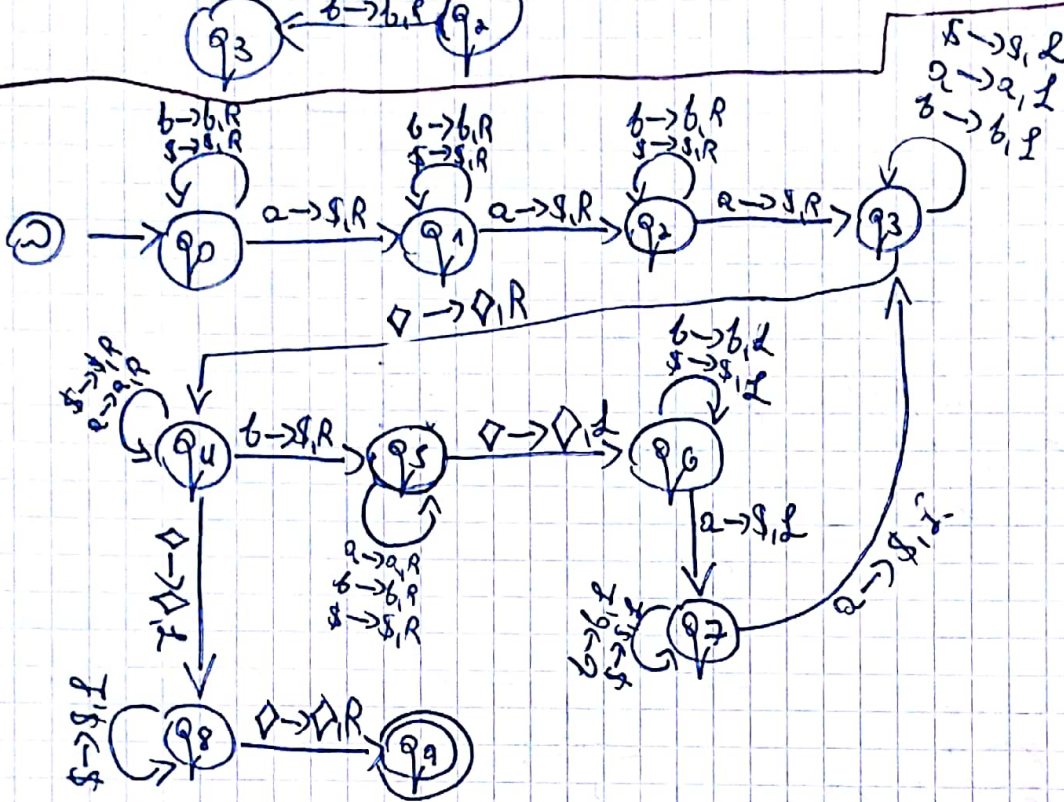 Q3
b→b,R
Q2
$→$,L
a→a,L
b→b,L
b→b,R
$→$,R
b→b,R
$→$,R
b→b,R
$→$,R
Q0
a→$,R
Q1
a→$,R
Q2
a→$,R
Q3
◇→◇,R
$→$,R
a→a,R
b→b,L
$→$,L
Q4
b→$,R
Q5
◇→◇,L
Q6
a→a,R
b→b,R
$→$,R
a→$,L
◇→◇,L
b→b,L
$→$,L
Q7
a→$,L
$→$,L
Q8
◇→◇,R
Q9